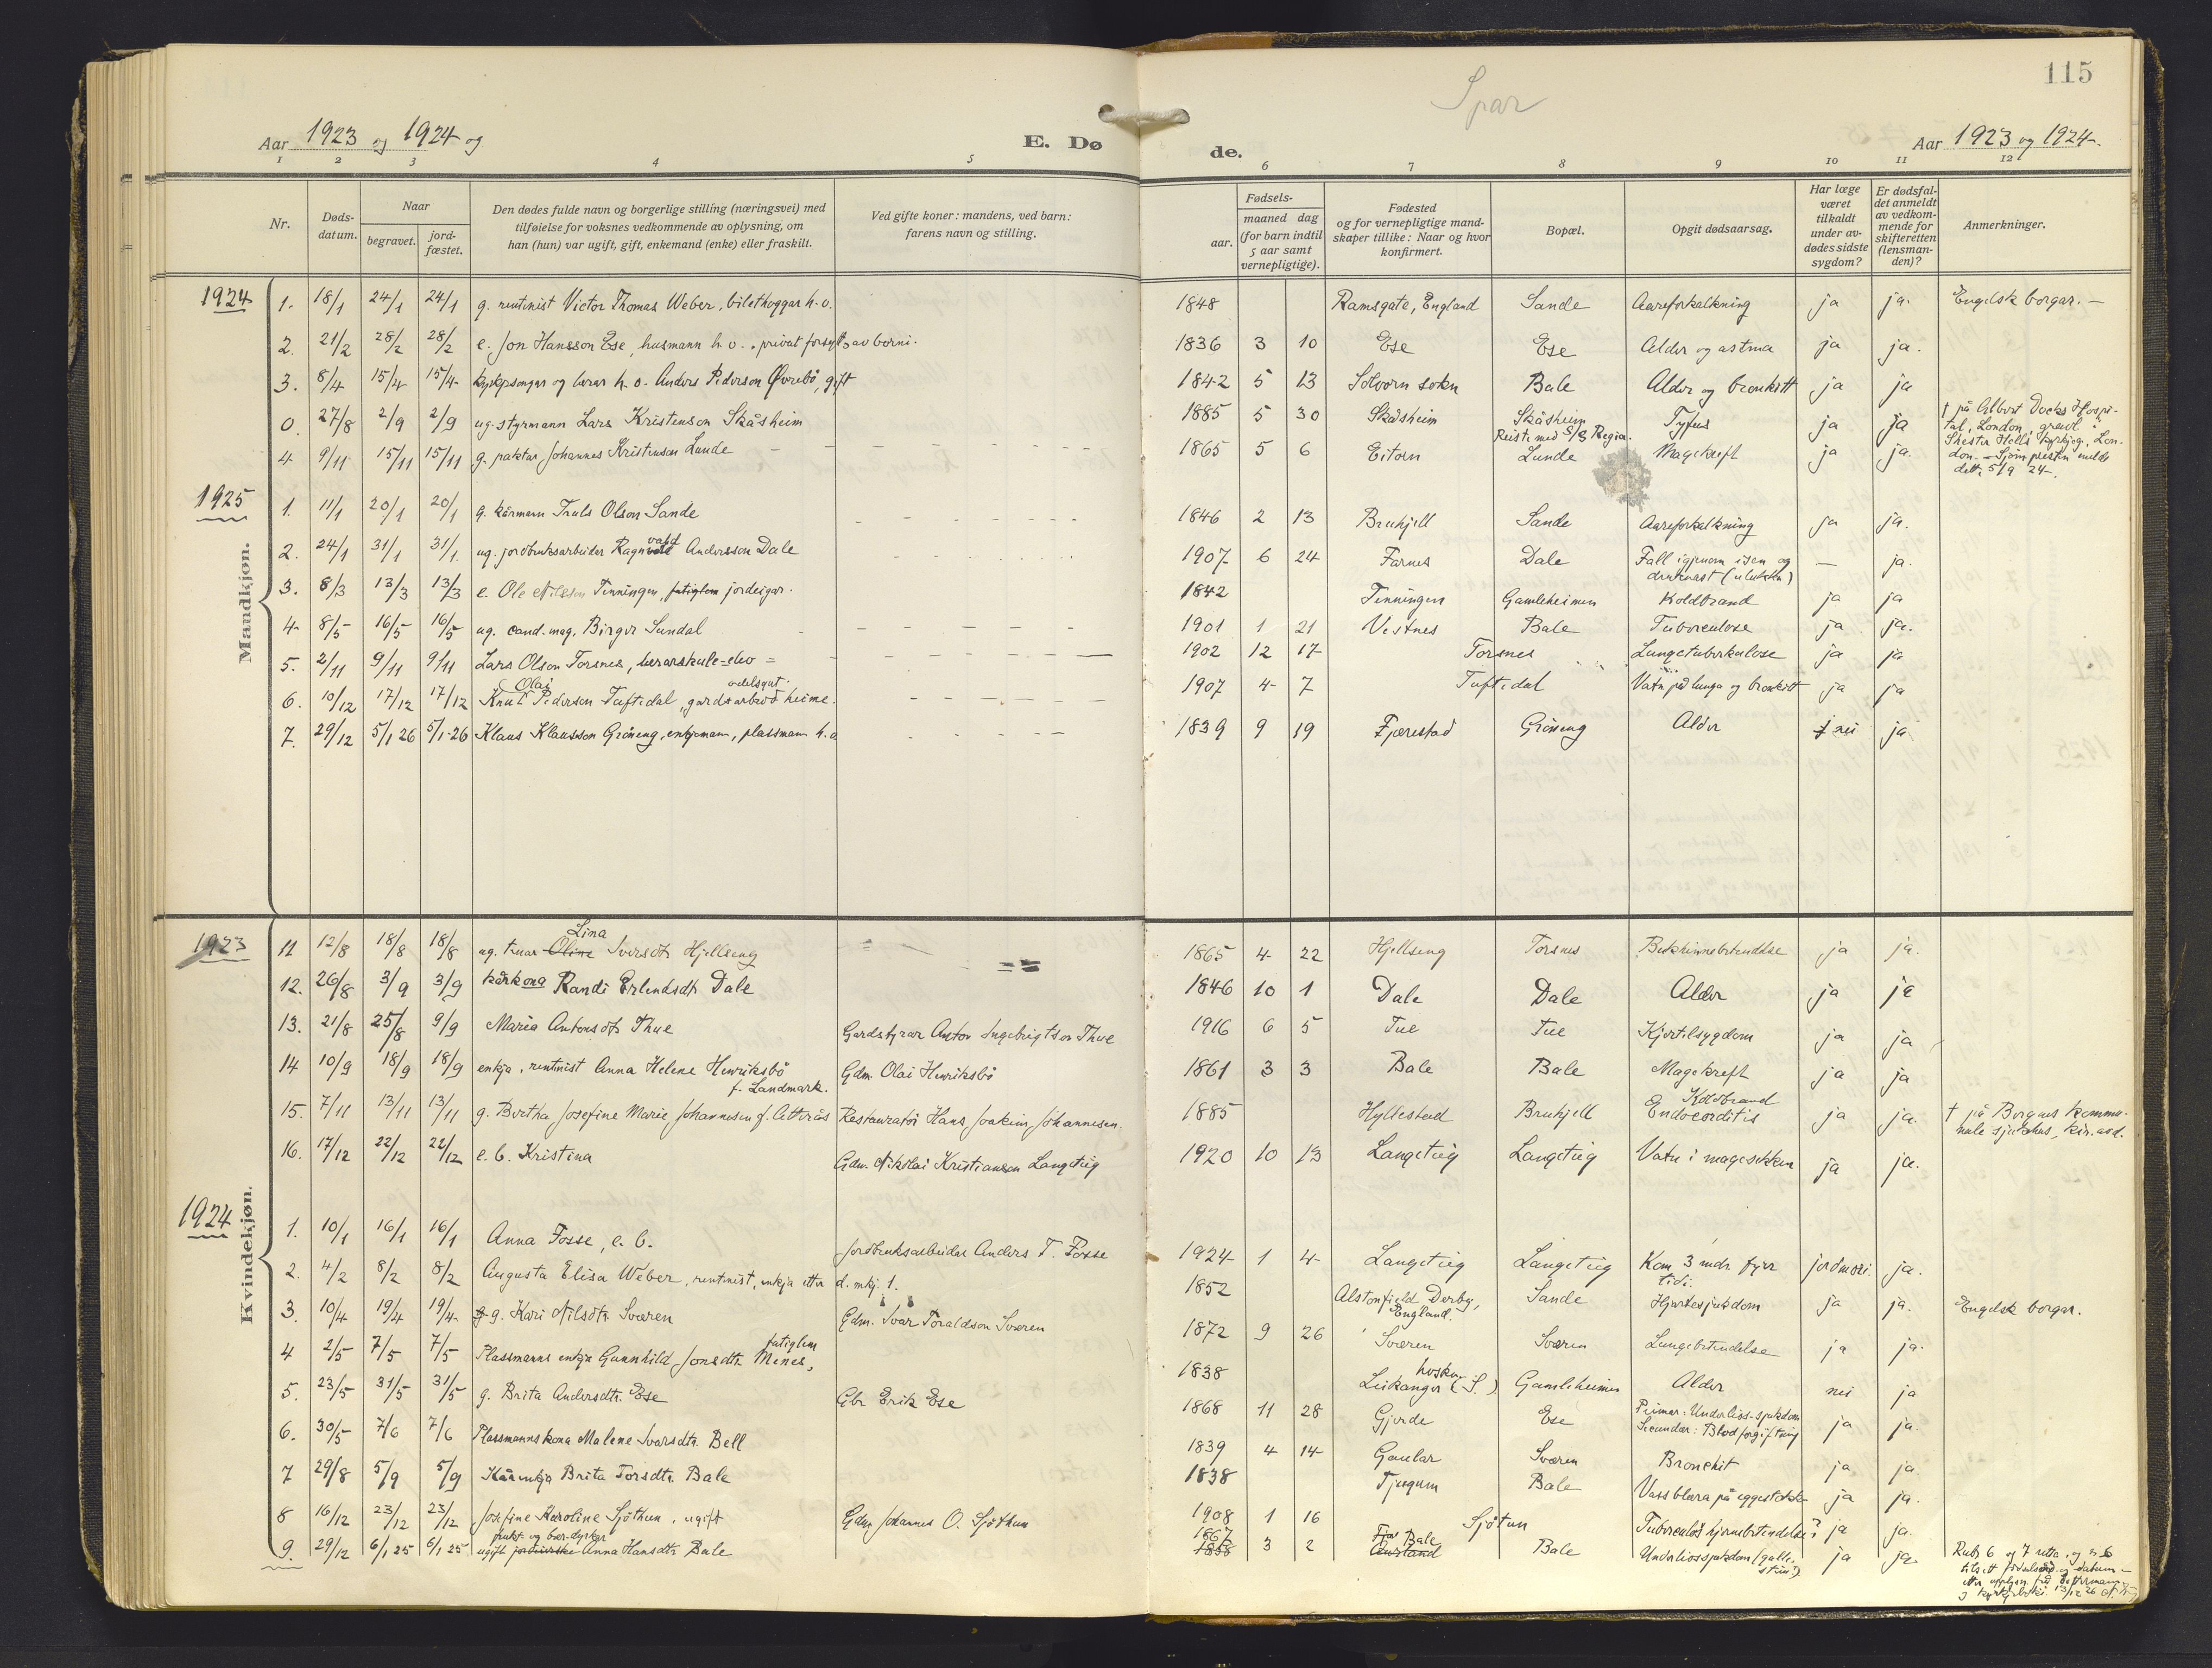 115
Spar
Aar 1923 og 1924 og
E. Dø
de.
Aar 1923 og 1924.
1 2 3 4 5 6 7 8 9 10 11 12
Nr.
Døds-datum.
Naar
begravet.
jord-fæstet.
Den dødes fulde navn og borgerlige stilling (næringsvei) med
tilføielse for voksnes vedkommende av oplysning, om
han (hun) var ugift, gift, enkemand (enke) eller fraskilt.
Ved gifte koner: mandens, ved barn:
farens navn og stilling.
Fødsels-
aar.
maaned dag
(for barn indtil
5 aar samt
vernepligtige).
Fødested
og for vernepligtige mand-
skaper tillike: Naar og hvor
konfirmert.
Bopæl.
Opgit dødsaarsag.
Har læge
været
tilkaldt
under av-
dødes sidste
sygdom?
Er dødsfal-
det anmeldt
av vedkom-
mende for
skifteretten
(lensman-
den)?
Anmerkninger.
Mandkjøn.
1924
1. 18/1 24/1 24/1 g. rentenist Victor Thomas Weber, bilethoggar h.o. 1848 Ramsgate, England Sande Aareforkalkning ja ja. Engelsk borgar.
2. 21/2 28/2 28/2 e. Jon Hansson Ese, husmann h.o., privat forsytt av borni. 1836 3 10 Ese Ese Alder og astma ja ja.
3. 8/4 15/4 15/4 kyrkjesongar og lærar h.o. Anders Pederson Øvrebö, gift 1842 5 13 Solvorn sokn Bale Alder og bronkitt ja ja
0. 27/8 2/9 2/9 ug. styrmann Lars Kristenson Skåsheim 1885 5 30 Skåsheim Skåsheim Reiste med S/S Regin. Tyfus ja ja † på Albert Docks Hospi-
tal, London, gravl. i
kyrkjeg., Lon-
don. Sjømpresten melde
dette 5/9 24.
4. 9/11 15/11 15/11 g. paktar Johannes Kristenson Lunde 1865 5 6 Eitorn Lunde Magekreft ja ja.
1925
1. 11/1 20/1 20/1 g. kårmann Truls Olson Sande 1846 2 13 Bruhjell Sande Aareforkalkning ja ja.
2. 24/1 31/1 31/1. ug. jordbruksarbeider Ragnvald Andersson Dale 1907 6 24 Farnes Dale Fall igjenom isen og
druknast (ulukke) — ja.
3. 8/3 13/3 13/3 e. Ole Nilsson Tenningen, fatiglem jordeigar. 1842 Tenningen Gamleheimen Koldbrand ja ja
4. 8/5 16/5 16/5 ug. cand. mag. Birger Sundal 1901 1 21 Vestnes Bale Tuberculose ja ja.
5. 2/11 9/11 9/11 Lars Olson Torsnes, lærarskule-elev 1902 12 17 Torsnes Lungetuberkulose ja ja
6. 10/12 17/12 17/12 Knut Olai Pederson Tuftedal, gardsarbeid heime. odelsgut. 1907 4 7 Tuftedal Vatn på lunga og bronkitt ja ja
7. 29/12 5/1 26 5/1-26 Klaus Klausson Gröneng, enkjemann, plassmann h.o 1839 9 19 Fjærestad Gröneng Alder nei ja
Kvindekjøn.
1923
11 12/8 18/8 18/8 ug. Oline Lina Iversdtr. Hjellseng 1865 4 22 Hjellseng Torsnes ja ja.
12. 26/8 3/9 3/9 kårkona Randi Erlendsdtr. Dale 1846 10 1 Dale Dale Alder ja ja
13. 21/8 25/8 9/9 Maria Antonsdtr. Thue Gardstyrar Anton Ingebrigtson Thue 1916 6 5 Tue Tue Kjertelsygdom ja ja
14 10/9 18/9 18/9 enkja, rentenist Anna Helene Henriksbö f. Landmark. Gdm. Olai Henriksbö 1861 3 3 Bale Bale Magekreft ja ja
15. 7/11 13/11 13/11 g. Bertha Josefine Marie Johannesen f. Atterås Restauratör Hans Joakim Johannesen. 1885 Hyllestad Bruhjell Koldbrand
Endocorditis ja ja. † på Bergens kommu-
nale sjukehus, kir. avd.
16. 17/12 22/12 22/12 e. b. Kristina Gdm. Nikolai Kristianson Langeteig 1920 10 13 Langeteig Langeteig Vatn i magesekken ja ja.
1924
1. 10/1 16/1 16/1 Anna Fosse, e. b. Jordbruksarbeidar Anders T. Fosse 1924 1 4 Langeteig Langeteig Kom 3 mdr. fyrr
tidi. jordmori. ja.
2. 4/2 8/2 8/2 Augusta Elisa Weber, rentenist, enkja etter d. mkj. 1. 1852 Alstonfield Derby,
England. Sande Hjartesjukdom ja ja. Engelsk borgar.
3. 10/4 19/4 19/4 g. Kari Nilsdtr. Sværen Gdm. Ivar Toraldson Sværen 1872 9 26 Sværen Sværen Lungebetendelse ja ja.
4 2/5 7/5 7/5 Plassmanns enkje Gunnhild Jonsdtr. Menes, fatiglem 1838 Leikanger (S.) Gamleheimen Alder nei ja
5. 23/5 31/5 31/5 g. Brita Andersdtr. Ese Gbr. Erik Ese 1868 11 28 Gjerde Ese Primær: Underlivs-sjukdom
Secundær: Blodforgiftning ja ja.
6. 30/5 7/6 7/6 Plassmannskona Malene Ivarsdtr. Bell 1839 4 14 Gaular Sværen Bronchit ja ja
7 29/8 5/9 5/9 Kårenkja Brita Torsdtr. Bale 1838 Tjugum Bale Vassblæra på eggestokken ja ja.
8 16/12 23/12 23/12 Josefine Karoline Sjöthun, ugift Gdm. Johannes O. Sjöthun 1908 1 16 Sjötun Tuberculös hjernebetendelse? ja ja.
9. 29/12 6/1 25 6/1 25 ugift frukt- og bær-dyrkar Anna Hansdtr. Bale 1867 3 2 Bale Aurland Bale Underlivssjukdom (galle-
stein?) ja ja. Rubr. 6 og 7 retta, og